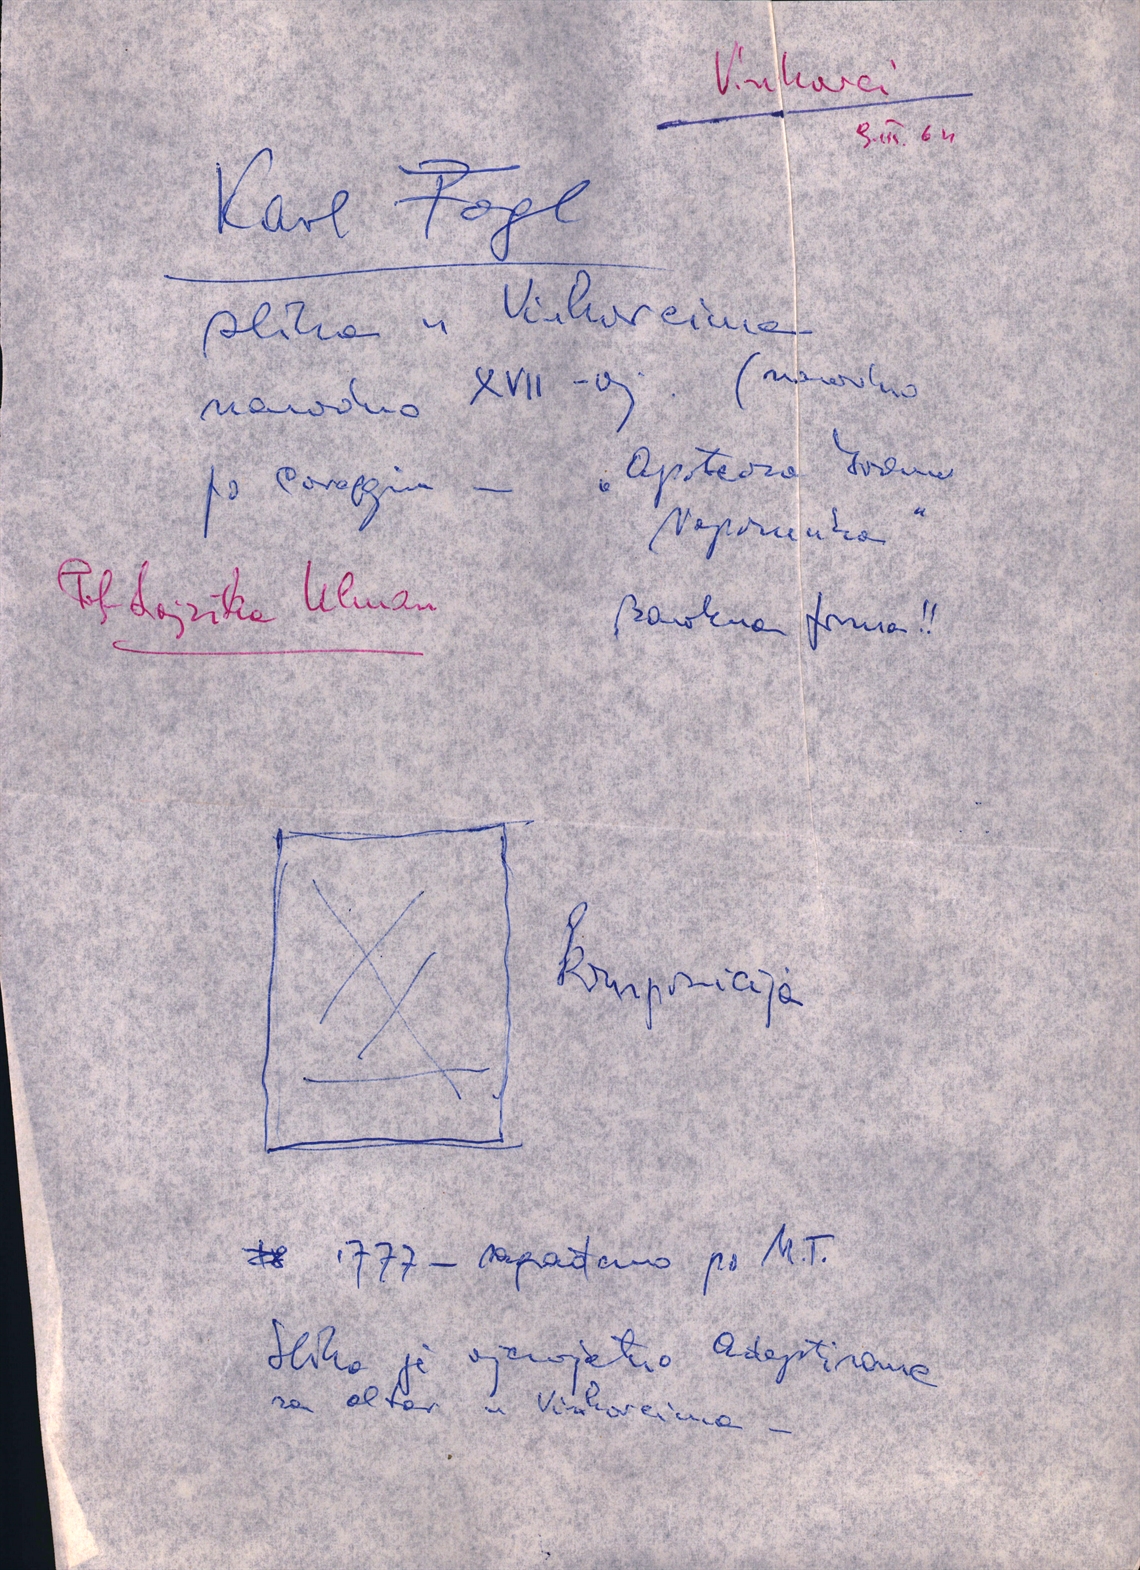 Vinkovci
9.III. 64
Karl Fogl
slika u Vinkovcima
navodno XVII -og. (navodno
po Coreggiu — „Apoteoza Ivana
Nepomuka"
Prof. Lojzika Ulman
Barokna forma!!
Kompozicija
1777 — sagrađeno po M.T.
Slika je vjerojatno adaptirana
za oltar u Vinkovcima —